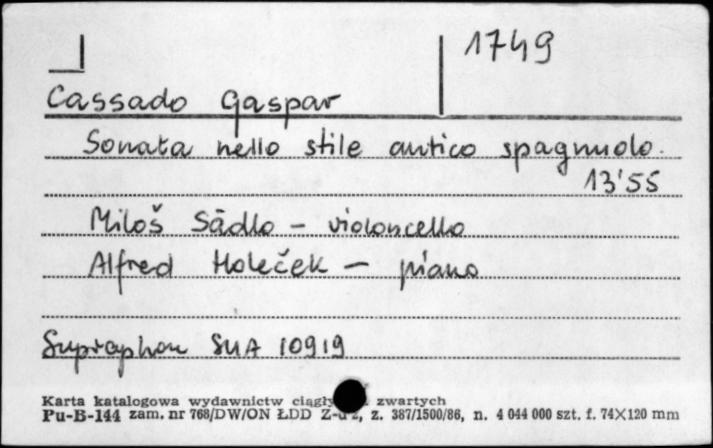 1749
Cassado Gaspar
Sonata nello stile antico spagnuolo.
13'55
Miloš Sādlo – violoncello
Alfred Holeček – piano
Supraphon SUA 10919
Karta katalogowa wydawnictw zwartych
Pu-B-144 zam. nr 768/DW/ON ŁDD z. 387/1500/86, n. 4 044 000 szt. f. 74X120 mm